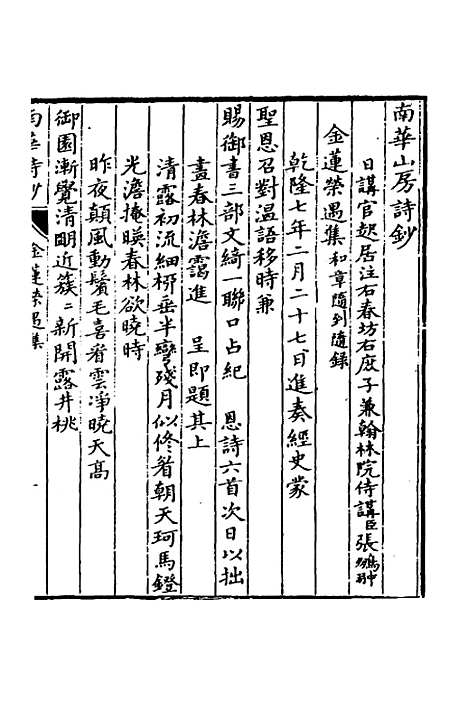 南華山房詩鈔
日講官起居注右春坊右庶子兼翰林院侍講臣張鵬翀
金蓮榮遇集和章隨到隨錄
乾隆七年二月二十七日進奏經史蒙
聖恩召對溫語移時兼
賜御書三部文綺一聯口占紀　恩詩六首次日以拙
畫春林澹靄進　呈即題其上
清露初流細栁垂半彎殘月似修眉朝天珂馬鐙
光澹掩暎春林欲曉時
昨夜顛風動鬢毛喜看雲淨曉天高
御園漸覺清明近簇〻新開露井桃
南華詩鈔
金蓮榮遇集
一